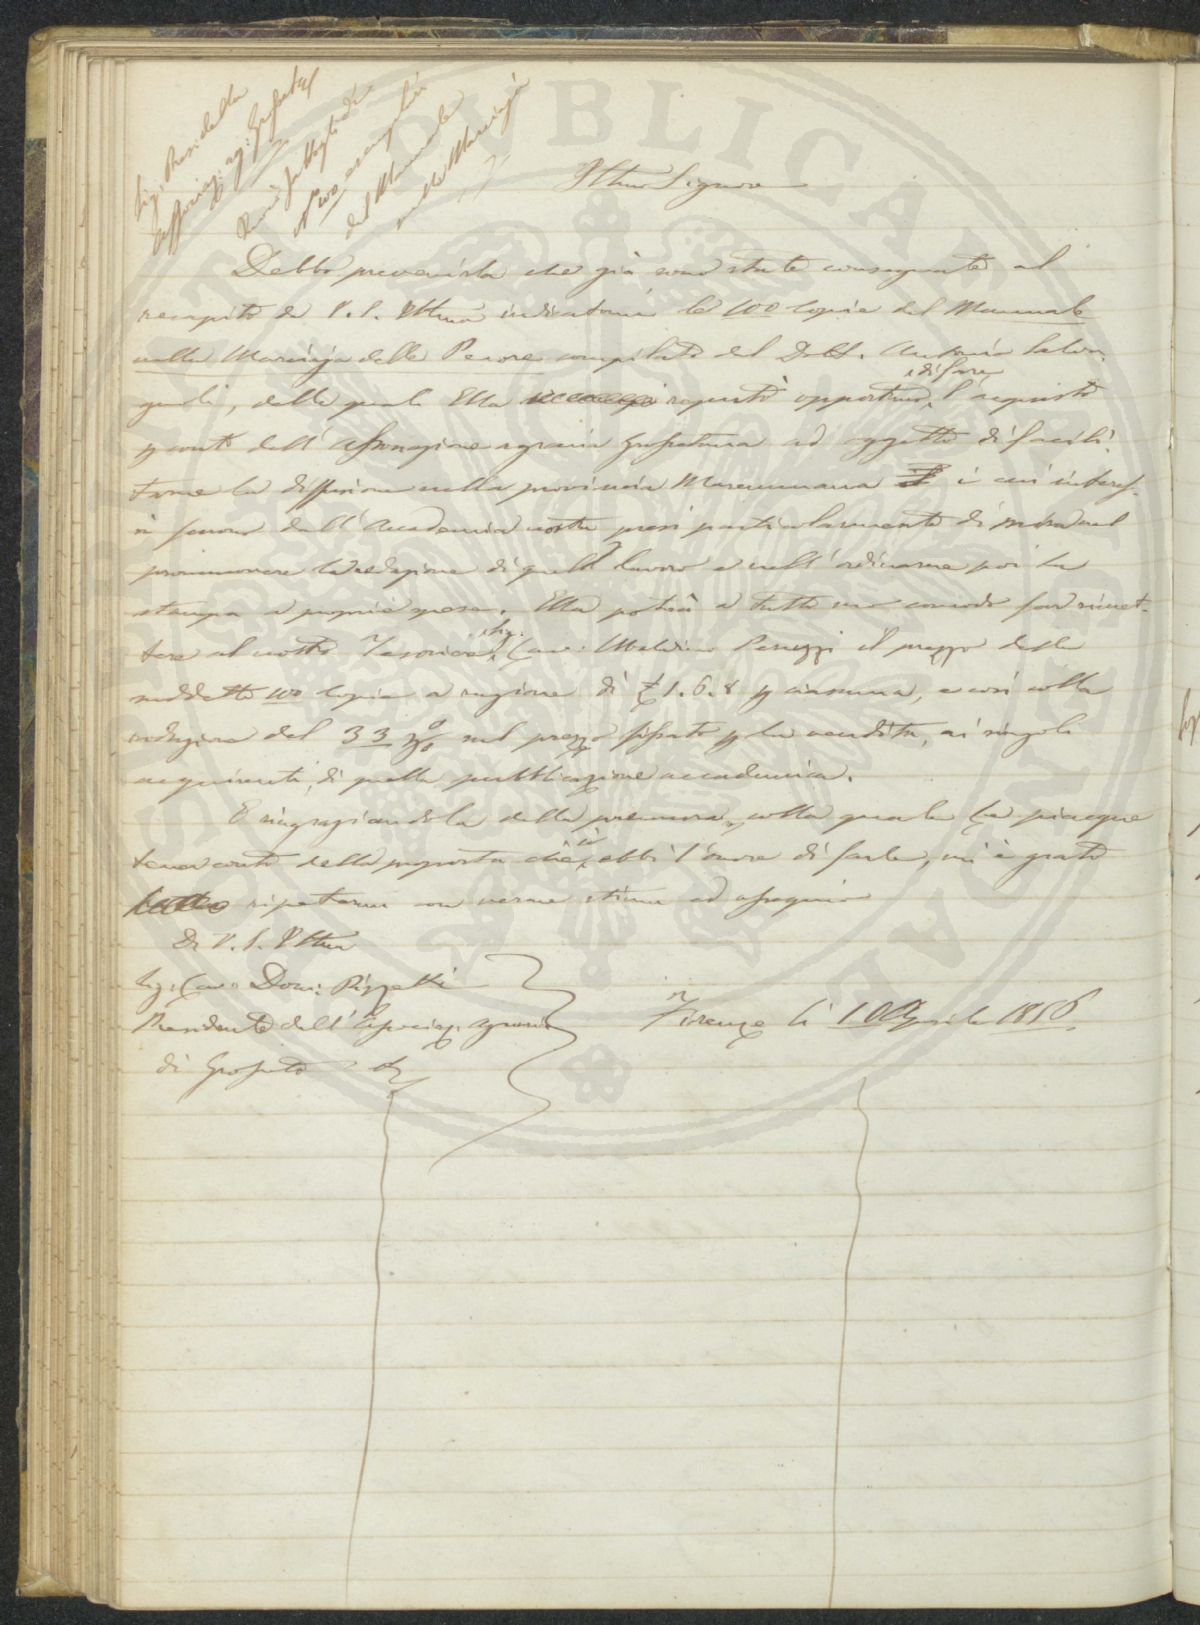 Sig. Presid. della
Associaz. ag: Grossetana
Rimessa
N.º 100 esemplari
del Manuale
sulla Marciaja
Ill.mo Signore
Debbo prevenirla che già sono state consegnate al
recapito da V. S. Ill.ma indicatomi le 100 copie del Manuale
sulla Marciaja delle Pecore compilato dal Dott. Antonio Salva-
gnoli, delle quali Ella reputò opportuno di fare l'acquisto
p conto dell'Associazione agraria Grossetana ad oggetto di facili-
tarne la diffusione nella provincia Maremmana i cui interes-
si furono dall'Accademia nostra presi particolarmente di mira nel
promuovere la redazione di quel lavoro e nell'ordinarne poi la
stampa a proprie spese. Ella potrà a tutto suo comodo far rimet-
tere al nostro Tesoriere Sig. Cav. Ubaldino Peruzzi il prezzo delle
suddette 100 copie a ragione di £ 1. 6. 8 p ciascuna, e così colla
riduzione del 33 p % sul prezzo fissato p la vendita, ai singoli
acquirenti, di quella pubblicazione accademica.
E ringraziandola della premura, colla quale Le piacque
tener conto della proposta che io ebbi l'onore di farle, mi è grato
ripetermi con verace stima ed ossequio
Di V. S. Ill.ma
Sig: Cav. Dom: Pizzetti
Presidente dell'Associaz. agraria
di Grosseto
Firenze li 10 Aprile 1856.